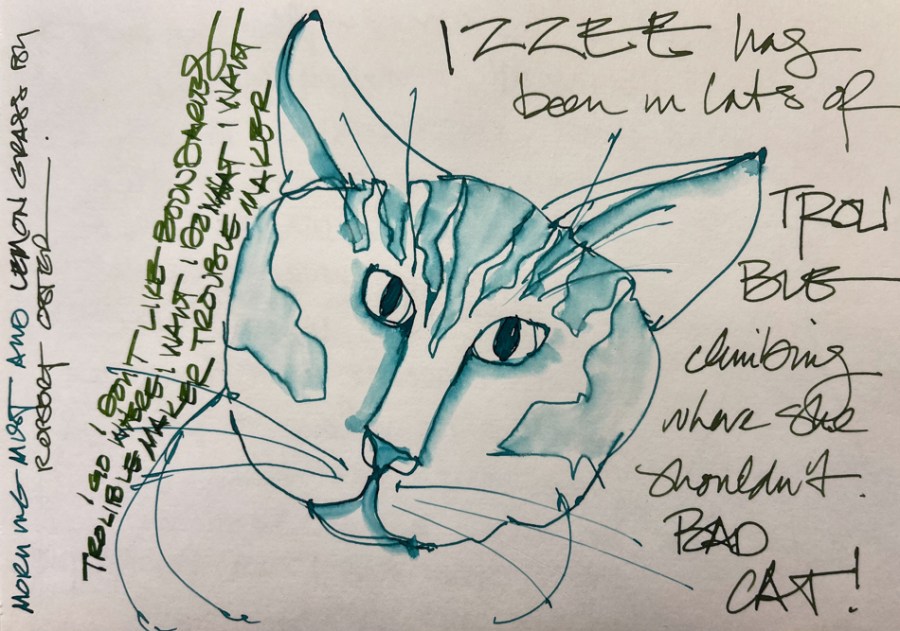 IZZEE has
been in lots of
TROU
BLE
climbing
where she
shouldn't.
BAD
CAT!
I DON'T LIKE BOUNDARIES
I GO WHERE I WANT I DO WHAT I WANT
TROUBLE MAKER TROUBLE MAKER
MORNING MIST AND LEMON GRASS FOR
ROBERT OSTER.